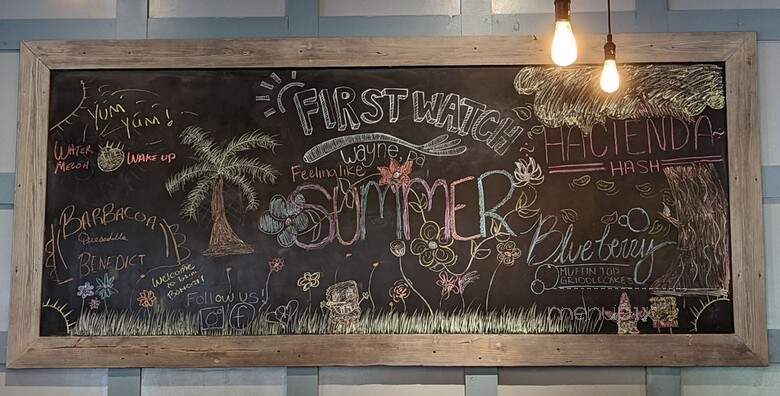 YUM
YUM!
WATER
MELON
WAKE UP
BARBACOA
Quesadilla
BENEDICT
Welcome
to
Follow us!
FIRST WATCH
Wayne, Pa
Feeling like
SUMMER
HACIENDA
HASH
Blueberry
MUFFIN TOP
GRIDDLECAKES
menupix